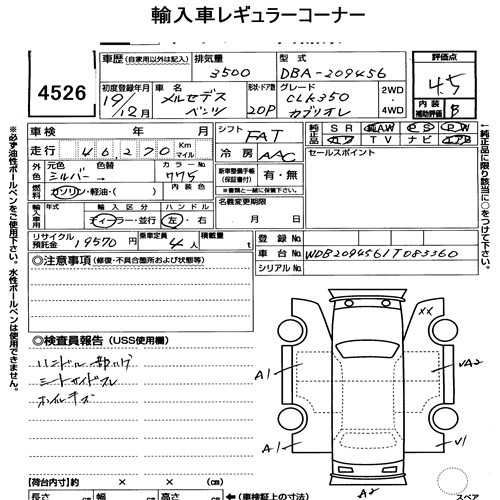 輸入車レギュラーコーナー
4526
車歴 (自家用以外は記入)
排気量
3500
型式
DBA-209456
評価点
4.5
内装補助評価 B
初度登録年月
19/12月
車名
メルセデスベンツ
形状・ドア数
2DP
グレード
CLK350
カブリオレ
2WD
4WD
車検 年 月
シフト FAT
純正品 SR AW PS PW
カワ TV ナビ エアB
走行 46,270 Km マイル
冷房 AAC
セールスポイント
外色 元色 シルバー 色替 → カラーNo. 775
燃料 ガソリン・軽油・( ) 内装色
新車整備手帳(保証書付) 有・無
※書類と一緒に保管下さい。
輸入車用 年式 輸入区分 ディーラー・並行 ハンドル 左・右
名義変更期限
月 日
リサイクル預託金 19570 円 乗車定員 4 人 積載量 t
登録No.
車台No. WDB2094561T083360
シリアルNo.
◎注意事項 (修復・不具合箇所および状態等)
◎検査員報告 (USS使用欄)
ハンドル一部ハゲ
シートサイドスレ
ホイルキズ
XX
A1
A1
A2
V1
A2
【荷台内寸】約 × × cm
長さ cm 幅 cm 高さ cm
(←車検証上の寸法)
スペア
※必ず油性ボールペンをご使用下さい。水性ボールペンは使用できません。
←純正品に限り該当に○をつけて下さい。